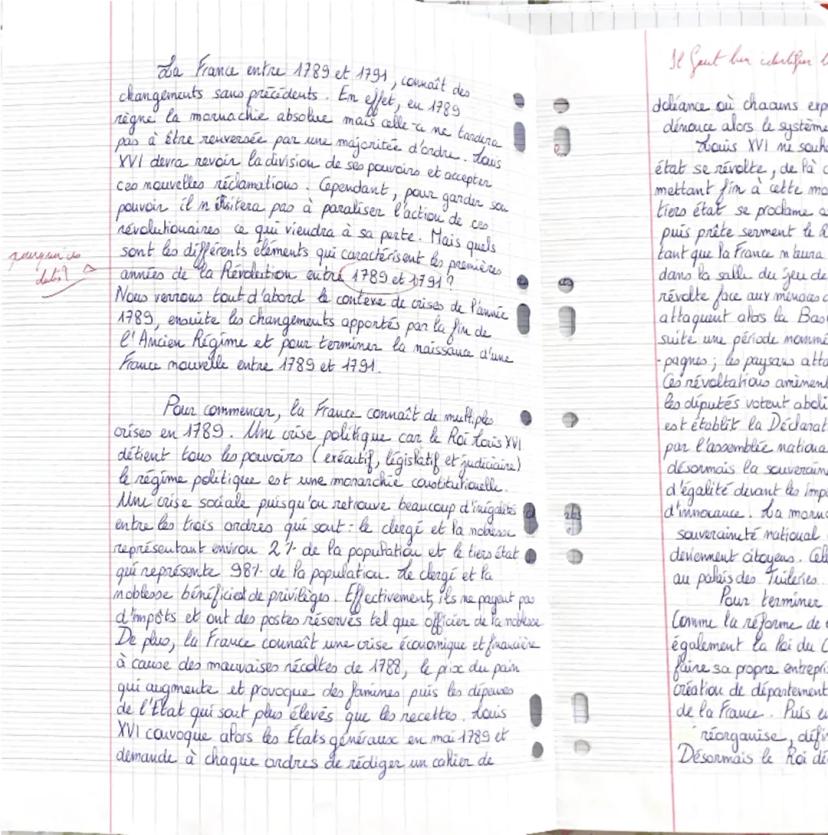 La France entre 1789 et 1791, connaît des
changements sans précédents. En effet, en 1789
règne la mornachie absolue mais celle-ci ne tardera
pas à être renversée par une majoritée d'ordre. Louis
XVI devra revoir la division de ses pouvoirs et accepter
ces nouvelles réclamations. Cependant, pour garder son
pouvoir il n'ésitera pas à paraliser l'action de ces
révolutionaires ce qui viendra à sa perte. Mais quels
sont les différents éléments qui caractérisent les premières
années de la Révolution entre 1789 et 1791?
pourquoi ces
dates?
Nous verrons tout d'abord le contexe de crises de l'année
1789, ensuite les changements apportés par la fin de
l'Ancien Régime et pour terminer la naissance d'une
France nouvelle entre 1789 et 1791.
Pour commencer, la France connaît de multiples
crises en 1789. Une crise politique car le Roi Louis XVI
détient tous les pouvoirs (exécutif, législatif et judiciaire)
le régime politique est une monarchie constitutionelle.
Une crise sociale puisqu'on retrouve beaucoup d'inégalités
entre les trois ordres qui sont: le clergé et la noblesse
représentant environ 2% de la population et le tiers état
qui représente 98% de la population. Le clergé et la
noblesse bénéficient de privilèges. Effectivement, ils ne payent pas
d'impôts et ont des postes réservés tel que officier de la noblesse
De plus, la France connaît une crise économique et financière
à cause des mauvaises récoltes de 1788, le prix du pain
qui augmente et provoque des famines puis les dépenses
de l'État qui sont plus élevés que les recettes. Louis
XVI convoque alors les États généraux en mai 1789 et
demande à chaque ordres de rédiger un cahier de
Il faut bien identifier
doléance où chacuns
dénonce alors le système
Louis XVI ne
état se révolte, de là
mettant fin à cette
tiers état se proclame
puis prête serment le
tant que la France n'aura
dans la salle du Jeu de
révolte face aux menaces
attaquent alors la
suite une période
-pagnes; les paysans
Ces révoltations
les députés votent
est établit la
par l'assemblée
désormais la
d'égalité devant les
d'innocence. La
souveraineté national
deviennent citoyens.
au palais des Tuileries.
Pour terminer
Comme la réforme de
également la Loi du
faire sa propre
création de
de la France. Puis
réorganise,
Désormais le Roi